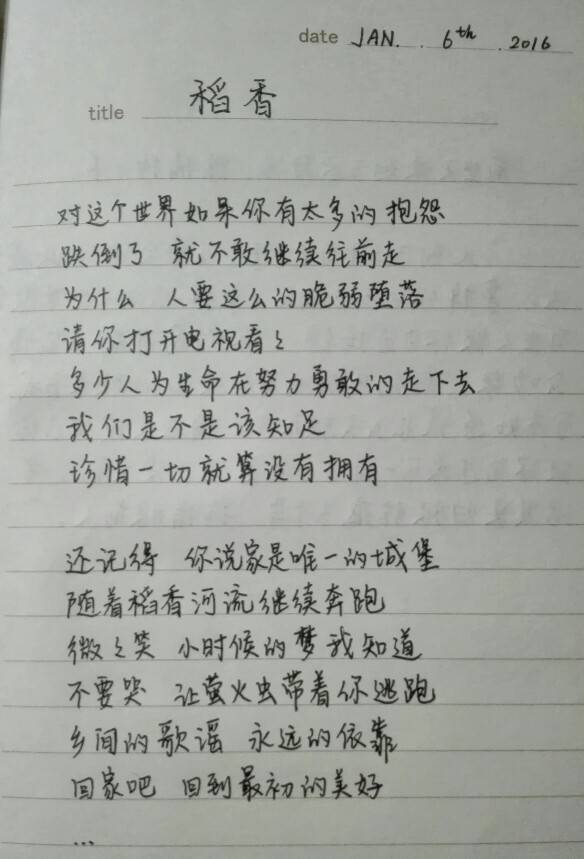 date JAN. 6th. 2016
title 稻香
对这个世界如果你有太多的抱怨
跌倒了 就不敢继续往前走
为什么 人要这么的脆弱堕落
请你打开电视看々
多少人为生命在努力勇敢的走下去
我们是不是该知足
珍惜一切就算没有拥有
还记得 你说家是唯一的城堡
随着稻香河流继续奔跑
微々笑 小时候的梦我知道
不要哭 让萤火虫带着你逃跑
乡间的歌谣 永远的依靠
回家吧 回到最初的美好
...